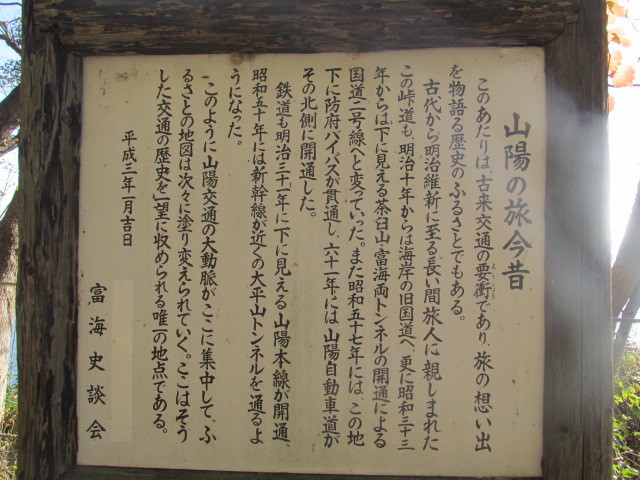 山陽の旅今昔
このあたりは、古来交通の要衝であり、旅の想い出
を物語る歴史のふるさとでもある。
古代から明治維新に至る長い間旅人に親しまれた
この峠道も、明治十年からは海岸の旧国道へ、更に昭和三十三
年からは下に見える茶臼山・富海両トンネルの開通による
国道二号線へと変っていった。また昭和五十七年には、この地
下に防府バイパスが貫通し、六十一年には山陽自動車道が
その北側に開通した。
鉄道も明治三十一年に下に見える山陽本線が開通、
昭和五十年には新幹線が近くの大平山トンネルを通るよ
うになった。
このように山陽交通の大動脈がここに集中して、ふ
るさとの地図は次々に塗り変えられていく。ここはそう
した交通の歴史を一望に収められる唯一の地点である。
平成三年一月吉日
富海史談会